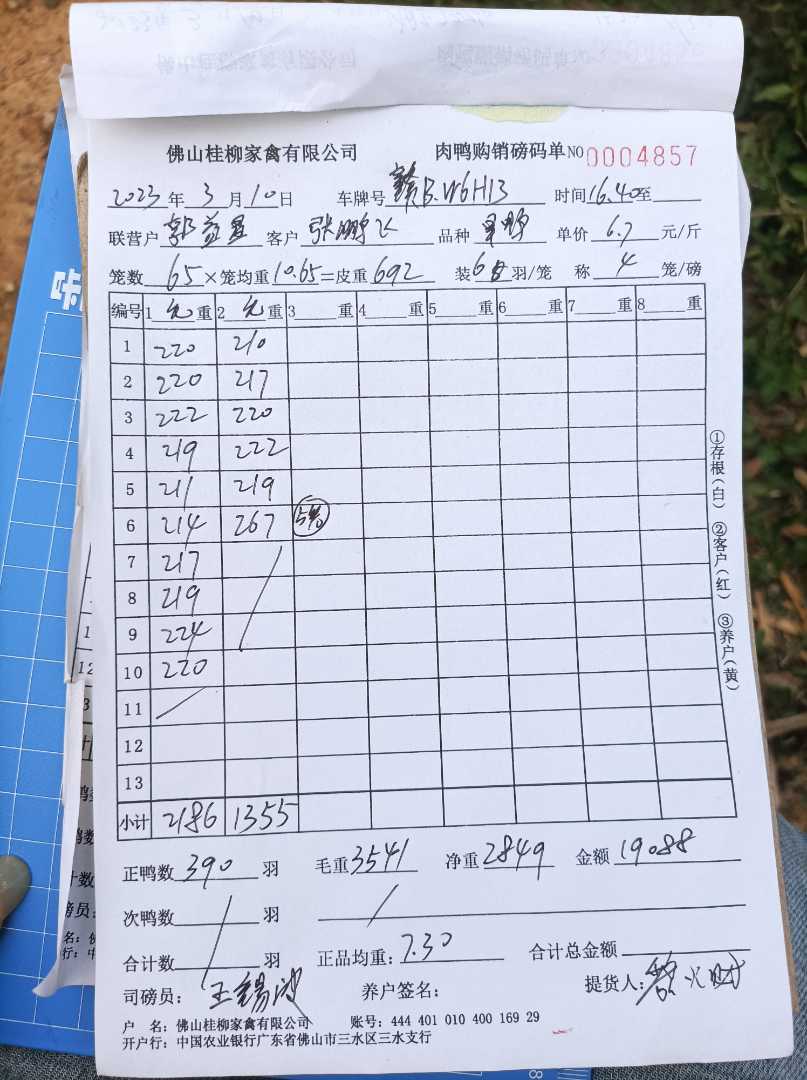 佛山桂柳家禽有限公司 肉鸭购销磅码单 NO 0004857
2023年3月10日 车牌号 赣B.W6H13 时间16.40至
联营户 郭益 客户 张鹏飞 品种 单价 6.7 元/斤
笼数 65×笼均重10.65=皮重692 装6羽/笼 称 4 笼/磅
编号 1 元 重 2 元 重 3 重 4 重 5 重 6 重 7 重 8 重
1 220 210
2 220 217
3 222 220
4 219 222
5 211 219
6 214 267 5笼
7 217
8 219
9 224
10 220
11
12
13
小计 2186 1355
①存根(白) ②客户(红) ③养户(黄)
正鸭数 390 羽 毛重3541 净重2849 金额 19088
次鸭数 羽
合计数 羽 正品均重: 7.30 合计总金额
司磅员: 王锡波 养户签名: 提货人:
户 名: 佛山桂柳家禽有限公司 账号: 444 401 010 400 169 29
开户行: 中国农业银行广东省佛山市三水区三水支行